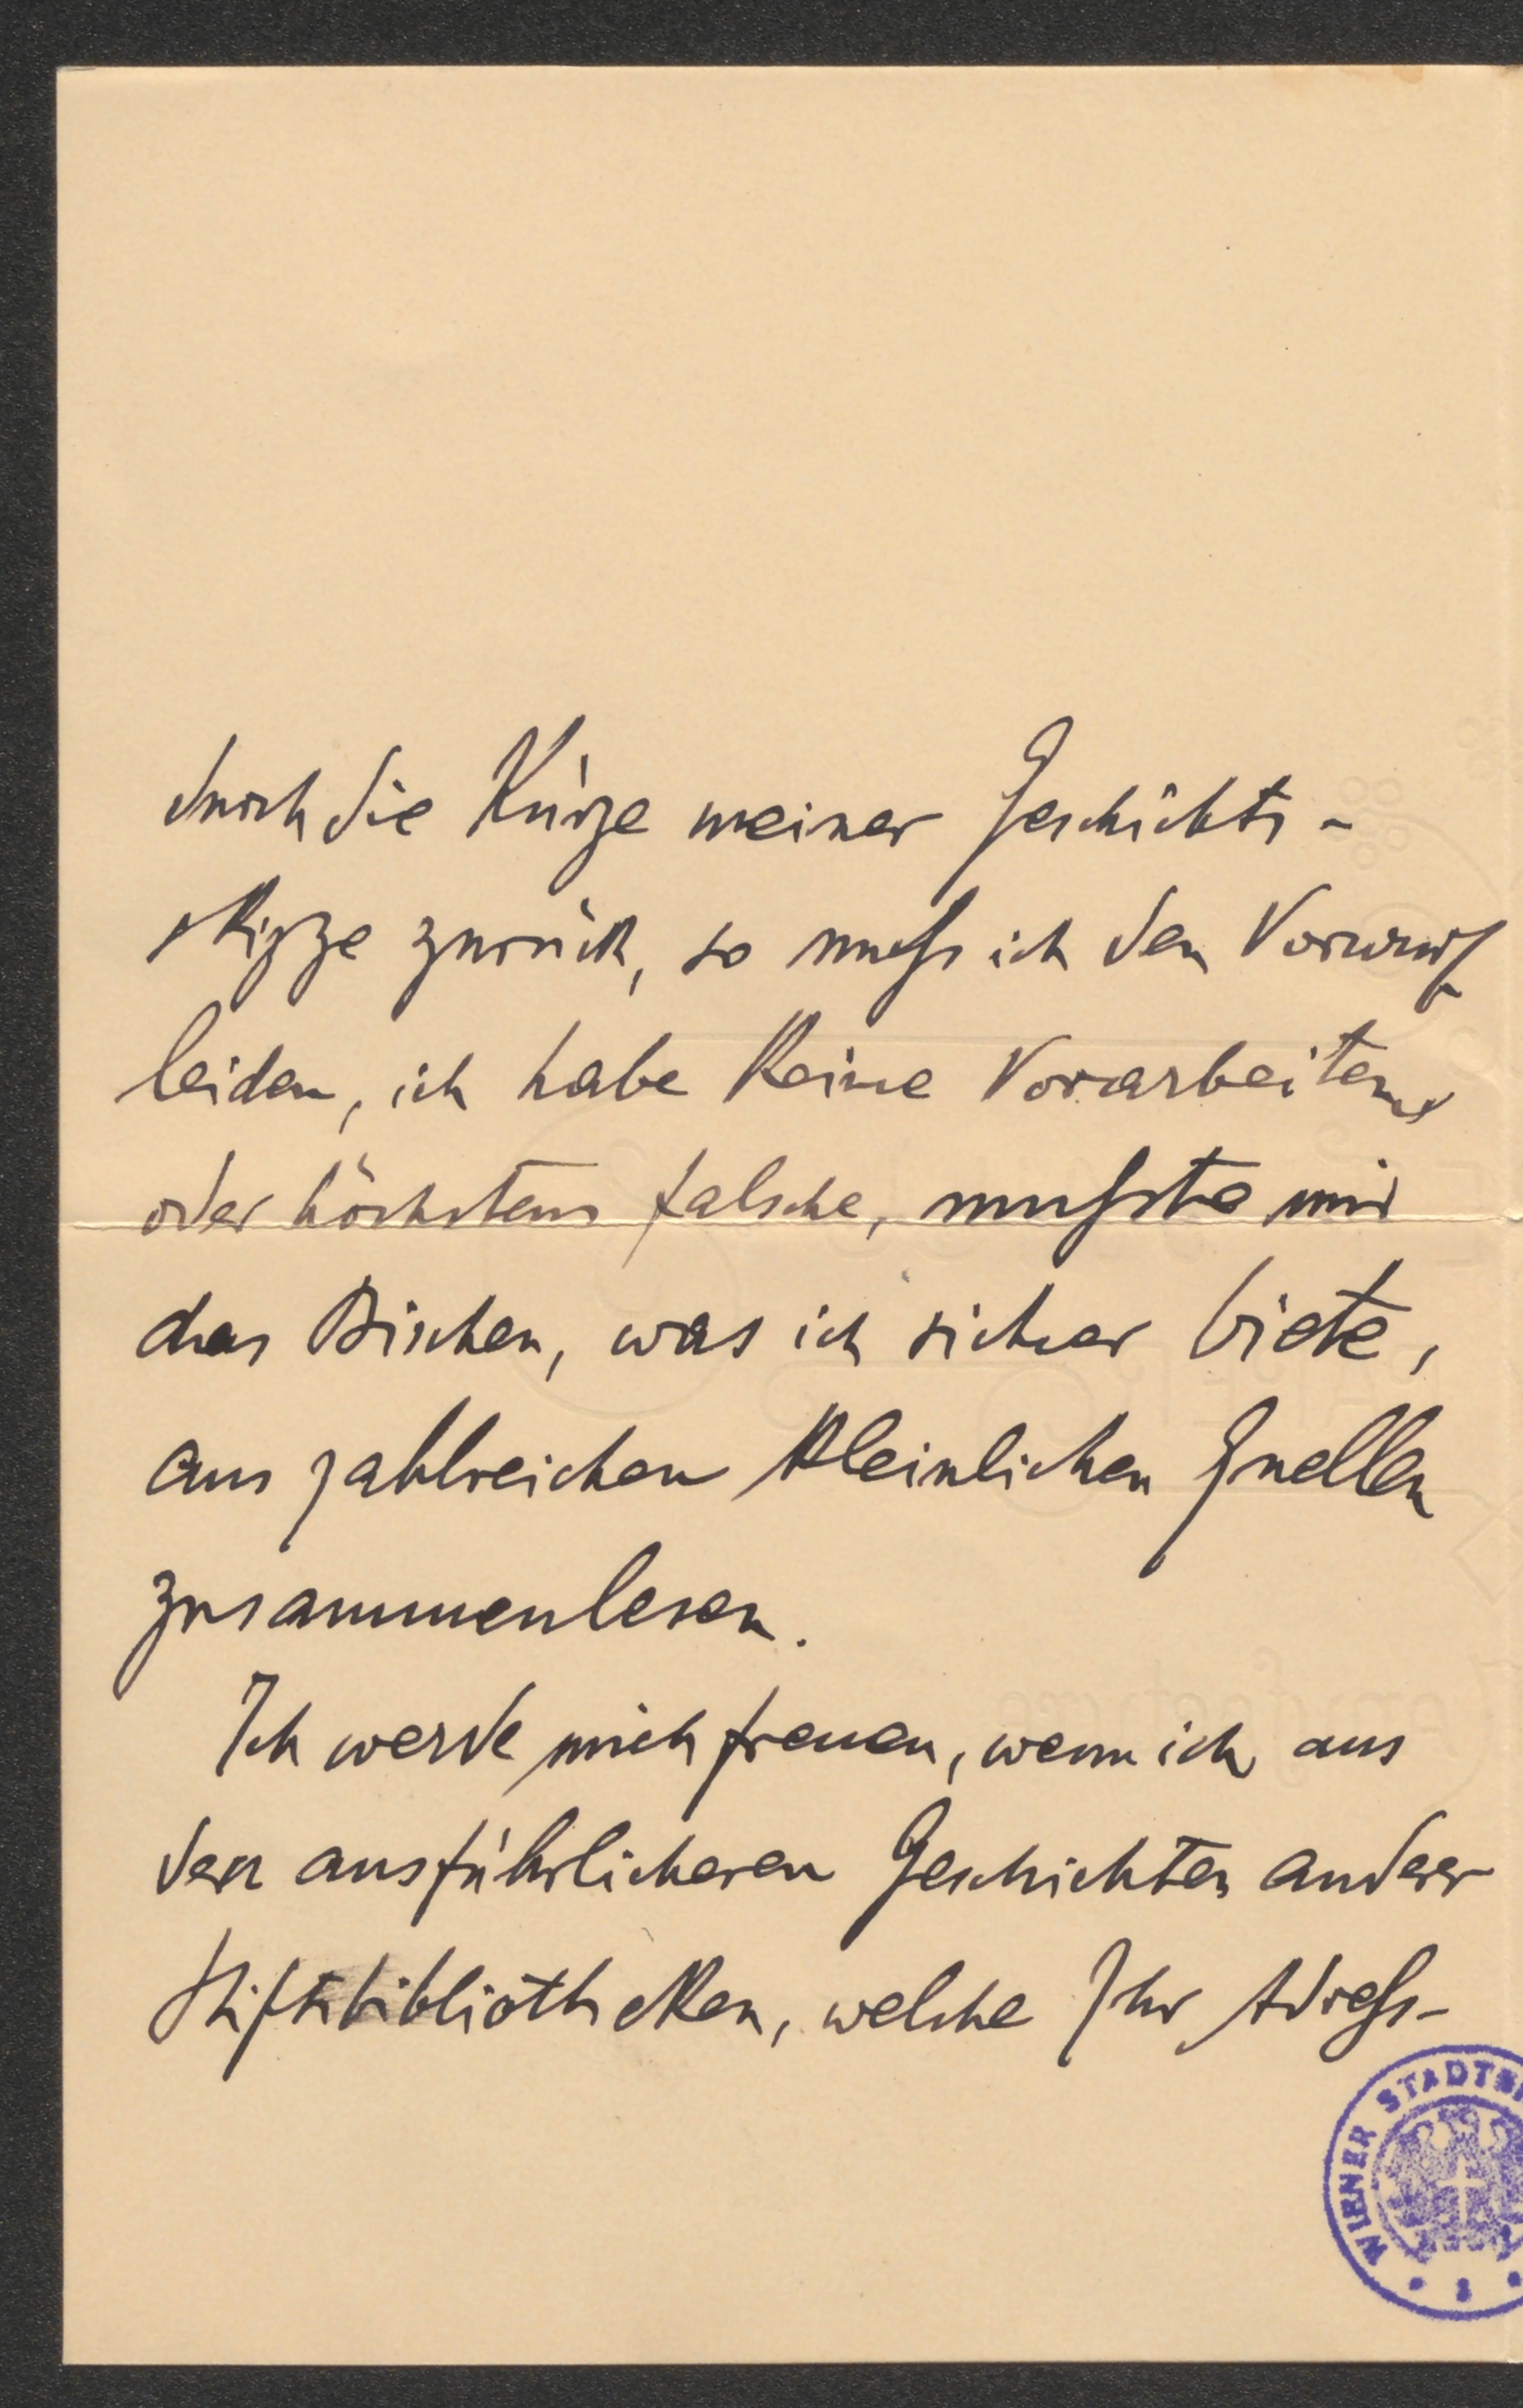 durch die Kürze meiner Geschichts-
skizze zurück, so muß ich den Vorwurf
leiden, ich habe keine Vorarbeiten
oder höchstens falsche, mußte mir
das Bischen, was ich sicher biete,
aus zahlreichen kleinlichen Quellen
zusammenlesen.
Ich werde mich freuen, wenn ich aus
den ausführlicheren Geschichten anderer
Stiftsbibliotheken, welche Ihr Adreß-
WIENER STADT